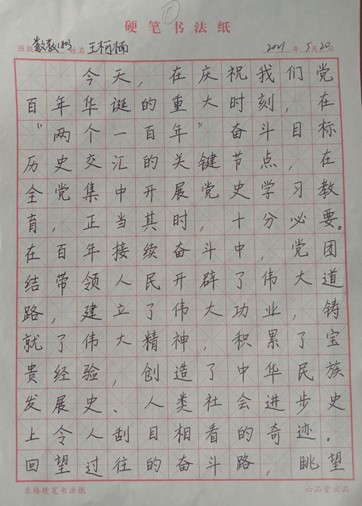 硬笔书法纸
班级 数教 姓名 王柯楠 2021年5月20日
今天，在庆祝我们党
百年华诞的重大时刻，在
“两个一百年”奋斗目标
历史交汇的关键节点，在
全党集中开展党史学习教
育，正当其时，十分必要。
在百年接续奋斗中，党团
结带领人民开辟了伟大道
路，建立了伟大功业，铸
就了伟大精神，积累了宝
贵经验，创造了中华民族
发展史、人类社会进步史
上令人刮目相看的奇迹。
回望过往的奋斗路，眺望
米格硬笔书法纸 六品堂出品